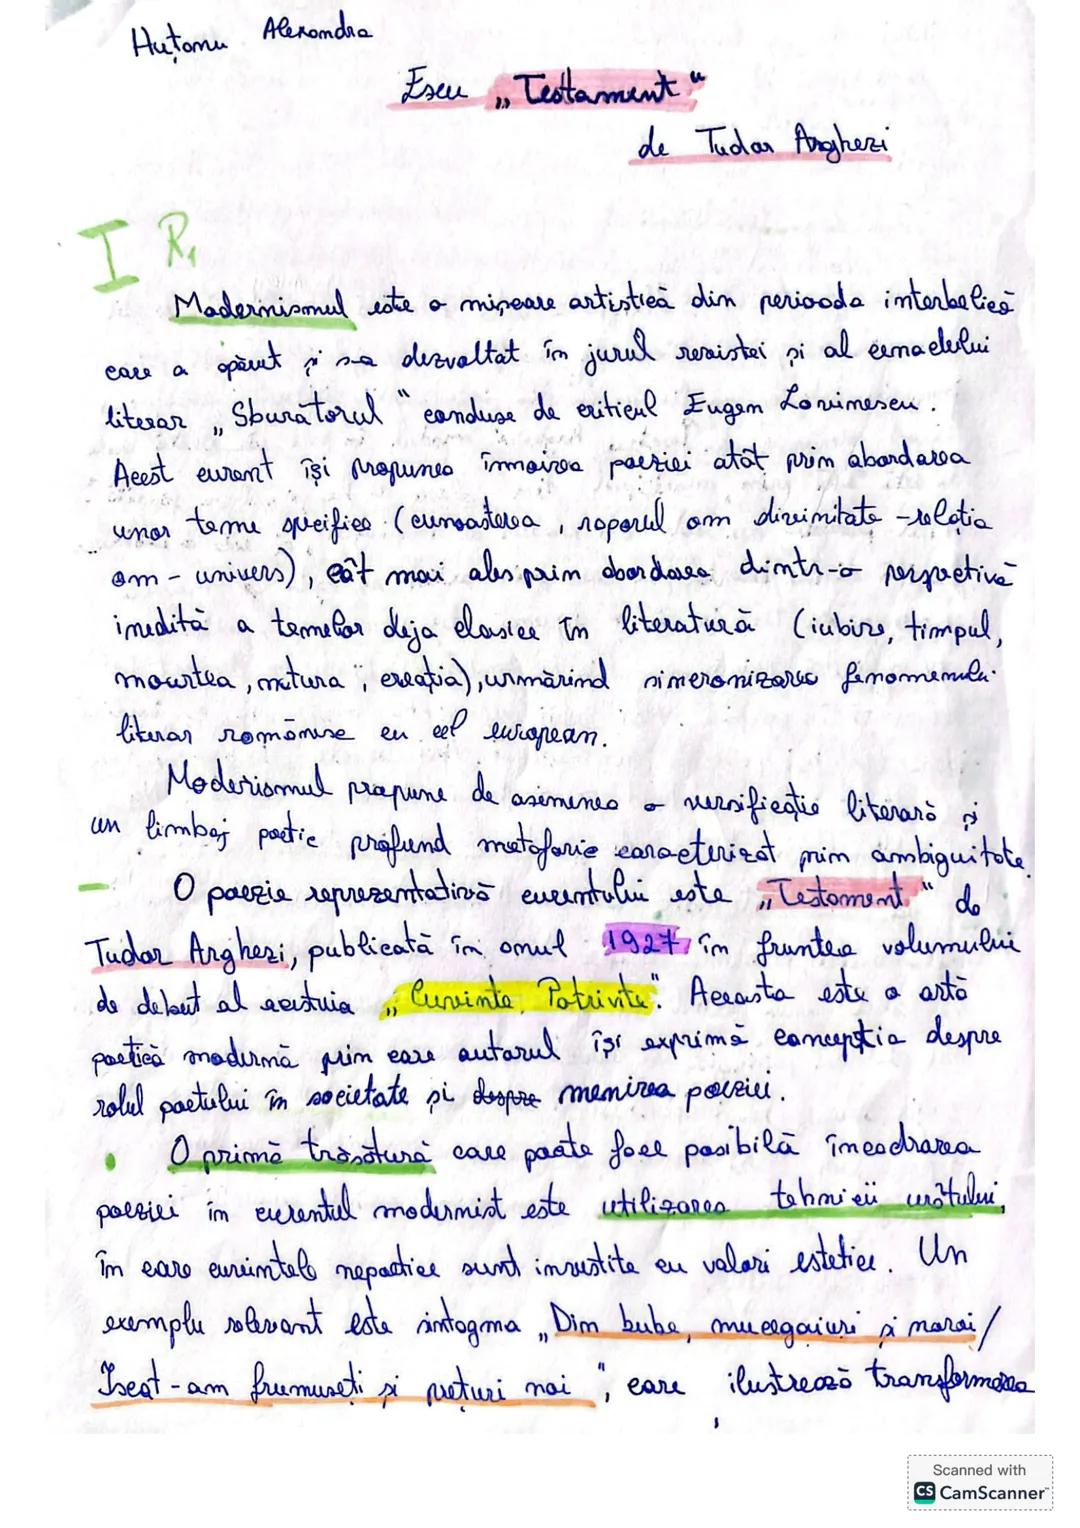 Huțanu Alexandra
Eseu „Testament"
de Tudor Arghezi
I R1
Modernismul este o mișcare artistică din perioada interbelică
care a apărut și s-a dezvoltat în jurul revistei și al cenaclului
literar „Sburătorul" conduse de criticul Eugen Lovinescu.
Acest curent își propunea înnoirea poeziei atât prin abordarea
unor teme specifice (cunoașterea, raporul om divinitate - relația
om - univers), cât mai ales prin abordarea dintr-o perspectivă
inedită a temelor deja clasice în literatură (iubire, timpul,
moartea, natura, creația), urmărind sincronizarea fenomenului
literar românesc cu cel european.
Moderismul propune de asemenea o versificație literară și
un limbaj poetic profund metaforic caracterizat prin ambiguitate.
O poezie reprezentativă curentului este „Testament" de
Tudor Arghezi, publicată în anul 1927 în fruntea volumului
de debut al acestuia „Cuvinte Potrivite". Aceasta este o artă
poetică modernă prin care autorul își exprimă concepția despre
rolul poetului în societate și despre menirea poeziei.
O primă trăsătură care poate face posibilă încadrarea
poeziei în curentul modernist este utilizarea tehnicii urâtului,
în care cuvintele nepoetice sunt investite cu valori estetice. Un
exemplu relevant este sintagma „Din bube, mucegaiuri și noroi/
Iscat-am frumuseți și prețuri noi", care ilustrează transformarea
Scanned with
CS CamScanner